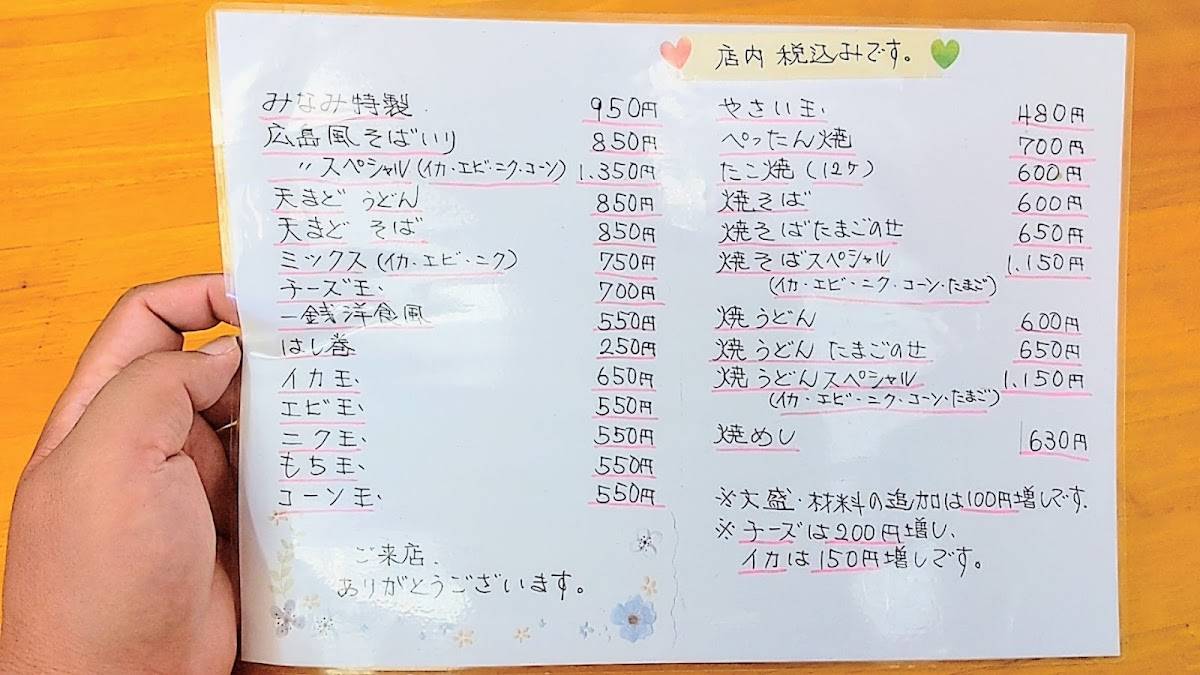 店内 税込みです。
みなみ特製 950円
広島風そばいり 850円
〃 スペシャル(イカ・エビ・ニク・コーン) 1.350円
天まど うどん 850円
天まど そば 850円
ミックス(イカ・エビ・ニク) 750円
チーズ玉 700円
一銭洋食風 550円
はし巻 250円
イカ玉 650円
エビ玉 550円
ニク玉 550円
もち玉 550円
コーン玉 550円
ご来店
ありがとうございます。
やさい玉 480円
ぺったん焼 700円
たこ焼(12ケ) 600円
焼そば 600円
焼そばたまごのせ 650円
焼そばスペシャル 1.150円
(イカ・エビ・ニク・コーン・たまご)
焼うどん 600円
焼うどん たまごのせ 650円
焼うどんスペシャル 1.150円
(イカ・エビ・ニク・コーン・たまご)
焼めし 630円
※大盛・材料の追加は100円増しです.
※チーズは200円増し、
イカは150円増しです。